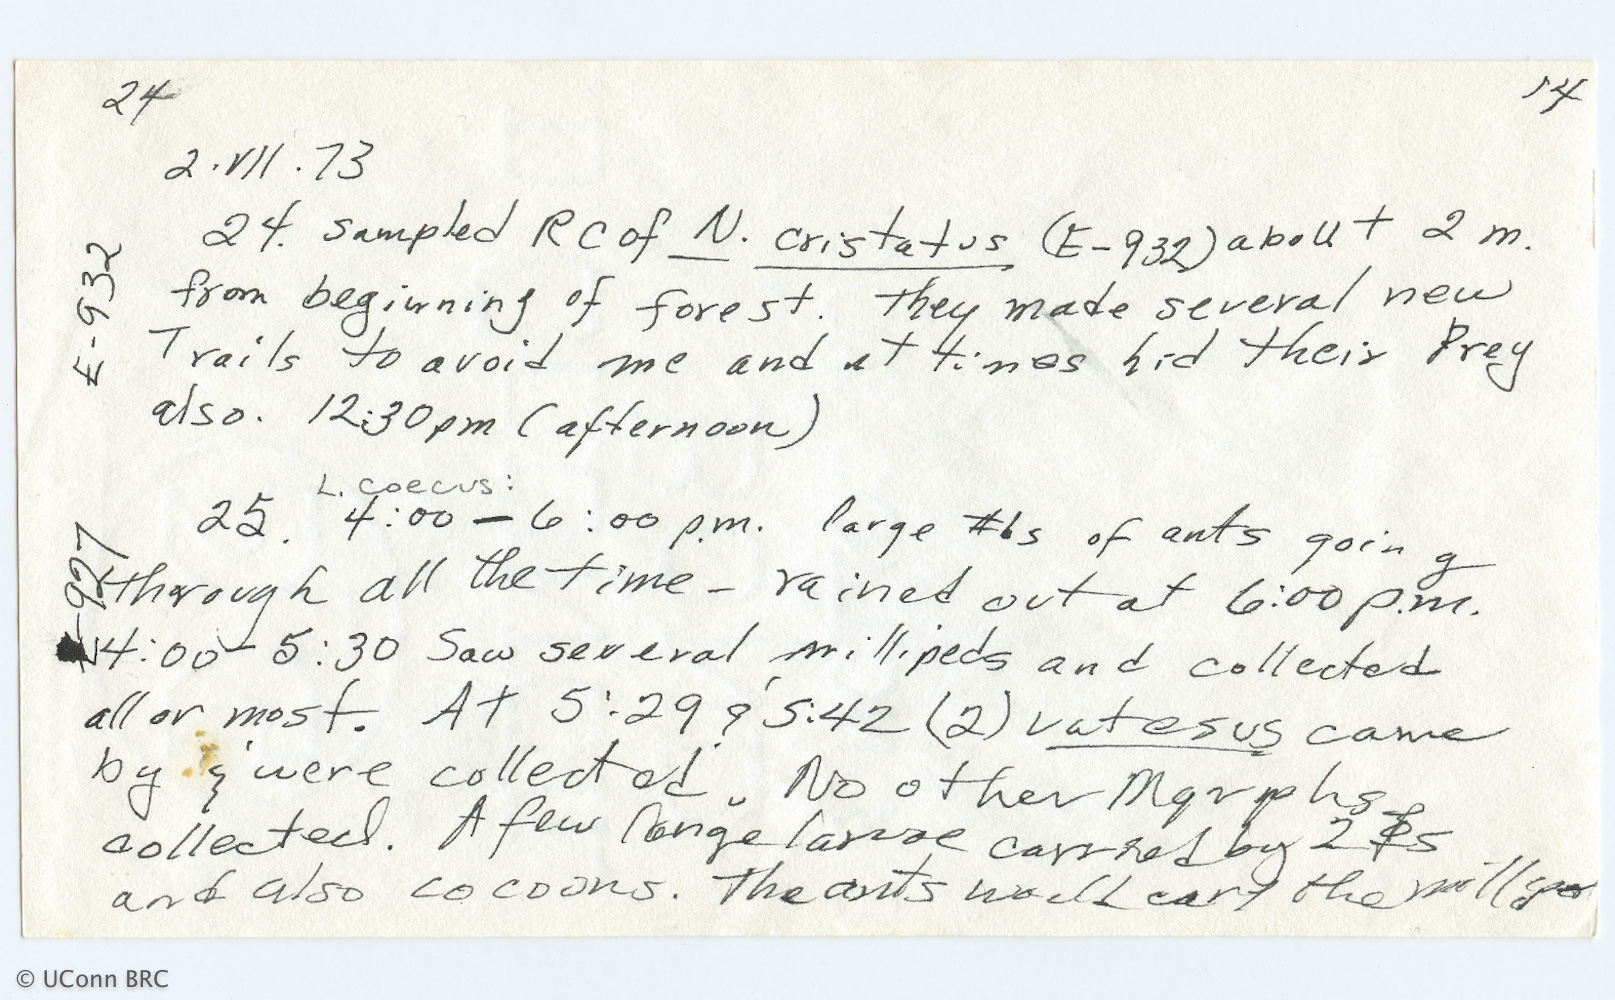 24 14
2.VII.73
24. Sampled RC of N. cristatus (E-932) about 2 m.
from beginning of forest. They made several new
Trails to avoid me and at times hid their Prey
also. 12:30 pm (afternoon)
E-932
L. coecus:
25. 4:00 — 6:00 p.m. large #s of ants going
through all the time - rained out at 6:00 p.m.
4:00 - 5:30 Saw several millipeds and collected
all or most. At 5:29 & 5:42 (2) vatesus came
by & were collected. No other Myrmphs
collected. A few large larvae carried by 2 ☿s
and also cocoons. The ants would carry the
E-927
© UConn BRC